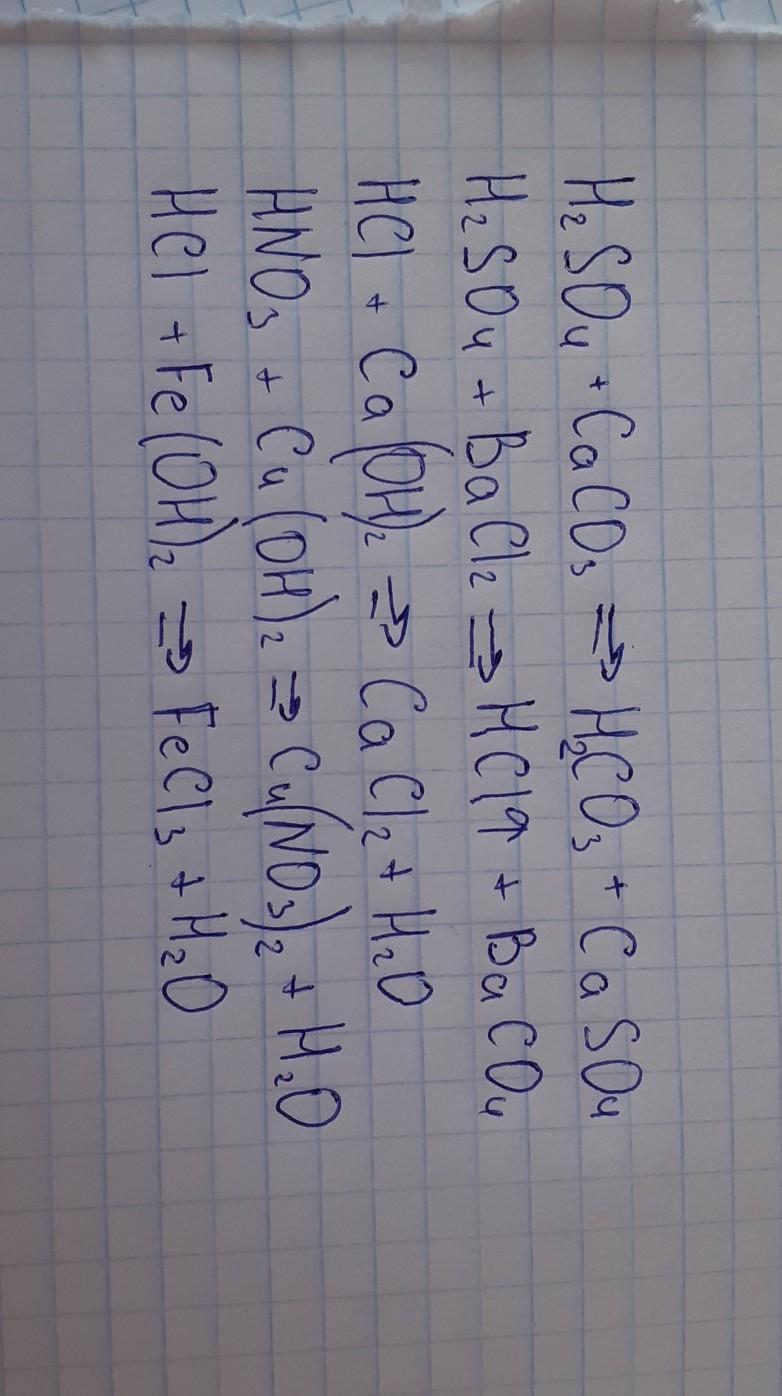 H₂SO₄ + CaCO₃ ⇒ H₂CO₃ + CaSO₄
H₂SO₄ + BaCl₂ ⇒ HCl↑ + BaCO₄
HCl + Ca(OH)₂ ⇒ CaCl₂ + H₂O
HNO₃ + Cu(OH)₂ ⇒ Cu(NO₃)₂ + H₂O
HCl + Fe(OH)₂ ⇒ FeCl₃ + H₂O